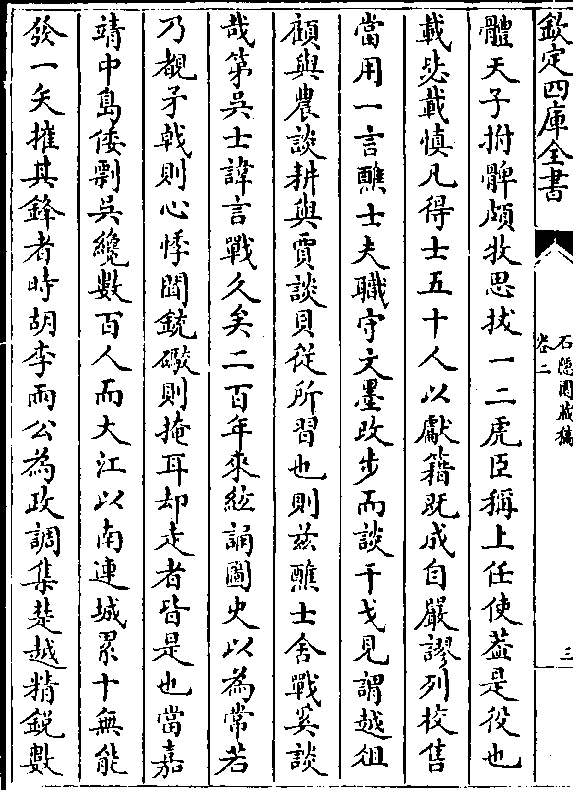 欽定四庫全書
石隱園藏稿
卷二
三
體天子拊髀頗牧思拔一二虎臣稱上任使葢是役也
載毖載慎凡得士五十人以獻籍既成自嚴謬列校售
當用一言醮士夫職守文墨改步而談干戈見謂越俎
顧與農談耕與賈談貝從所習也則兹醮士舍戰奚談
哉第吳士諱言戰久矣二百年來絃誦圖史以為常若
乃覩矛戟則心悸聞銃礮則掩耳却走者皆是也當嘉
靖中島倭剽吳纔數百人而大江以南連城累十無能
發一矢摧其鋒者時胡李兩公為政調集楚越精鋭數